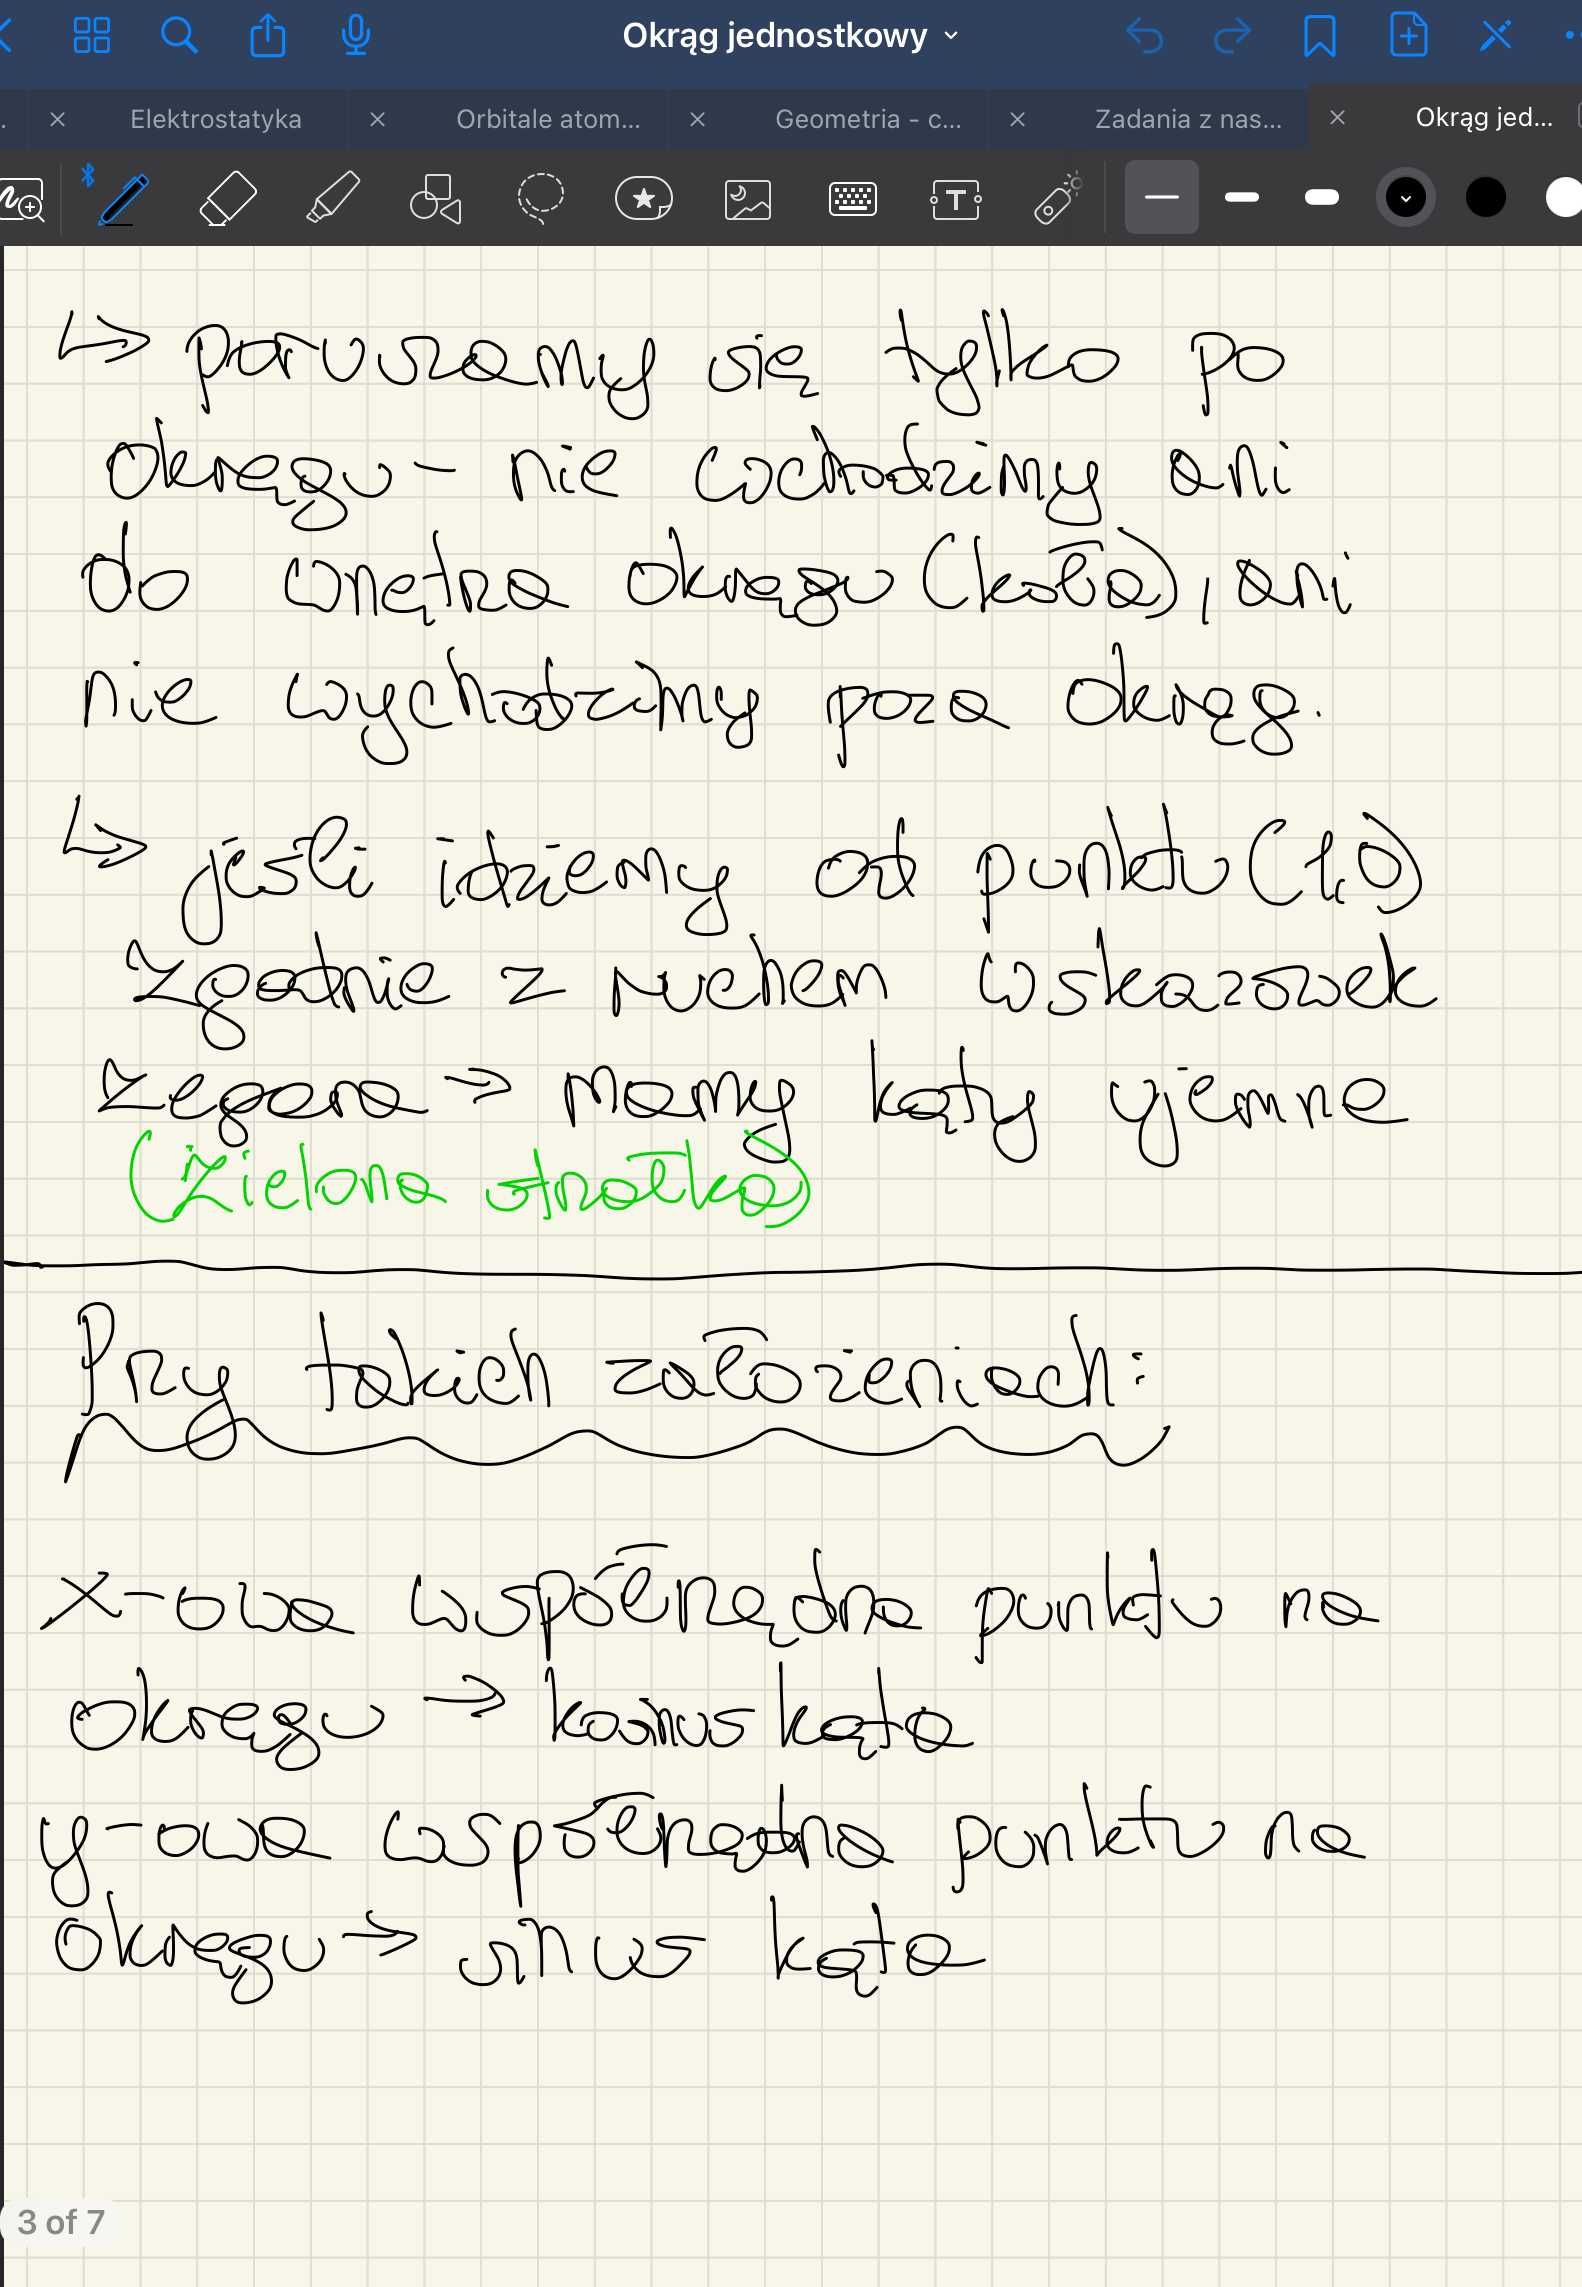 Okrąg jednostkowy
Elektrostatyka
Orbitale atom...
Geometria - c...
Zadania z nas...
Okrąg jed...
↳ poruszamy się tylko po
okręgu - nie wchodzimy ani
do wnętrza okręgu (koła), ani
nie wychodzimy poza okręg.
↳ jeśli idziemy od punktu (1,0)
zgodnie z ruchem wskazówek
zegara → mamy kąty ujemne
(zielona strzałka)
Przy takich założeniach:
x-owa współrzędna punktu na
okręgu → kosinus kąta
y-owa współrzędna punktu na
okręgu → sinus kąta
3 of 7